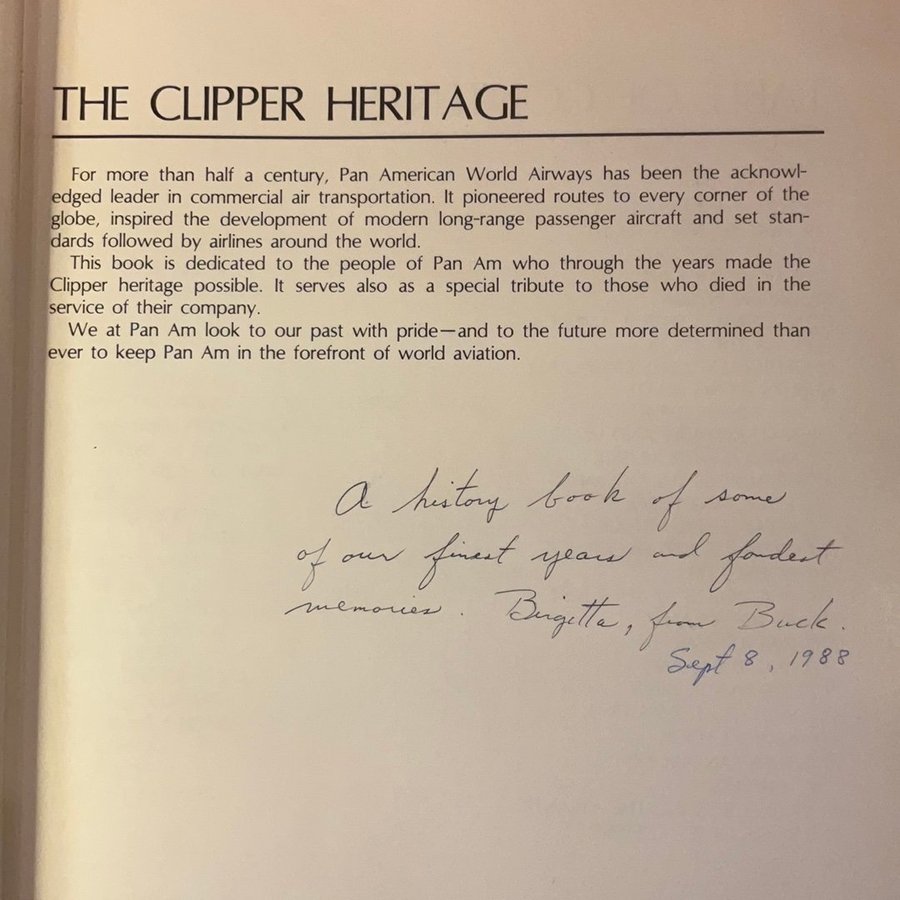 THE CLIPPER HERITAGE
For more than half a century, Pan American World Airways has been the acknowl-
edged leader in commercial air transportation. It pioneered routes to every corner of the
globe, inspired the development of modern long-range passenger aircraft and set stan-
dards followed by airlines around the world.
This book is dedicated to the people of Pan Am who through the years made the
Clipper heritage possible. It serves also as a special tribute to those who died in the
service of their company.
We at Pan Am look to our past with pride—and to the future more determined than
ever to keep Pan Am in the forefront of world aviation.
A history book of some
of our finest years and fondest
memories. Birgitta, from Buck.
Sept 8, 1988